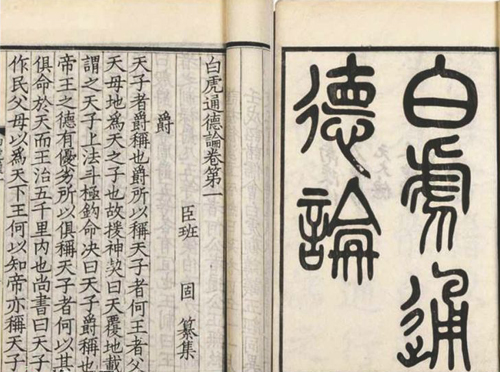 白虎通
德論
白虎通德論卷第一
臣班 固 纂集
爵
天子者爵稱也爵所以稱天子者何王者父
天母地爲天之子也故援神契曰天覆地載
謂之天子上法斗極鈎命决曰天子爵稱也
帝王之德有優劣所以俱稱天子者何以其
俱命於天而王治五千里内也尚書曰天子
作民父母以爲天下王何以知帝亦稱天子